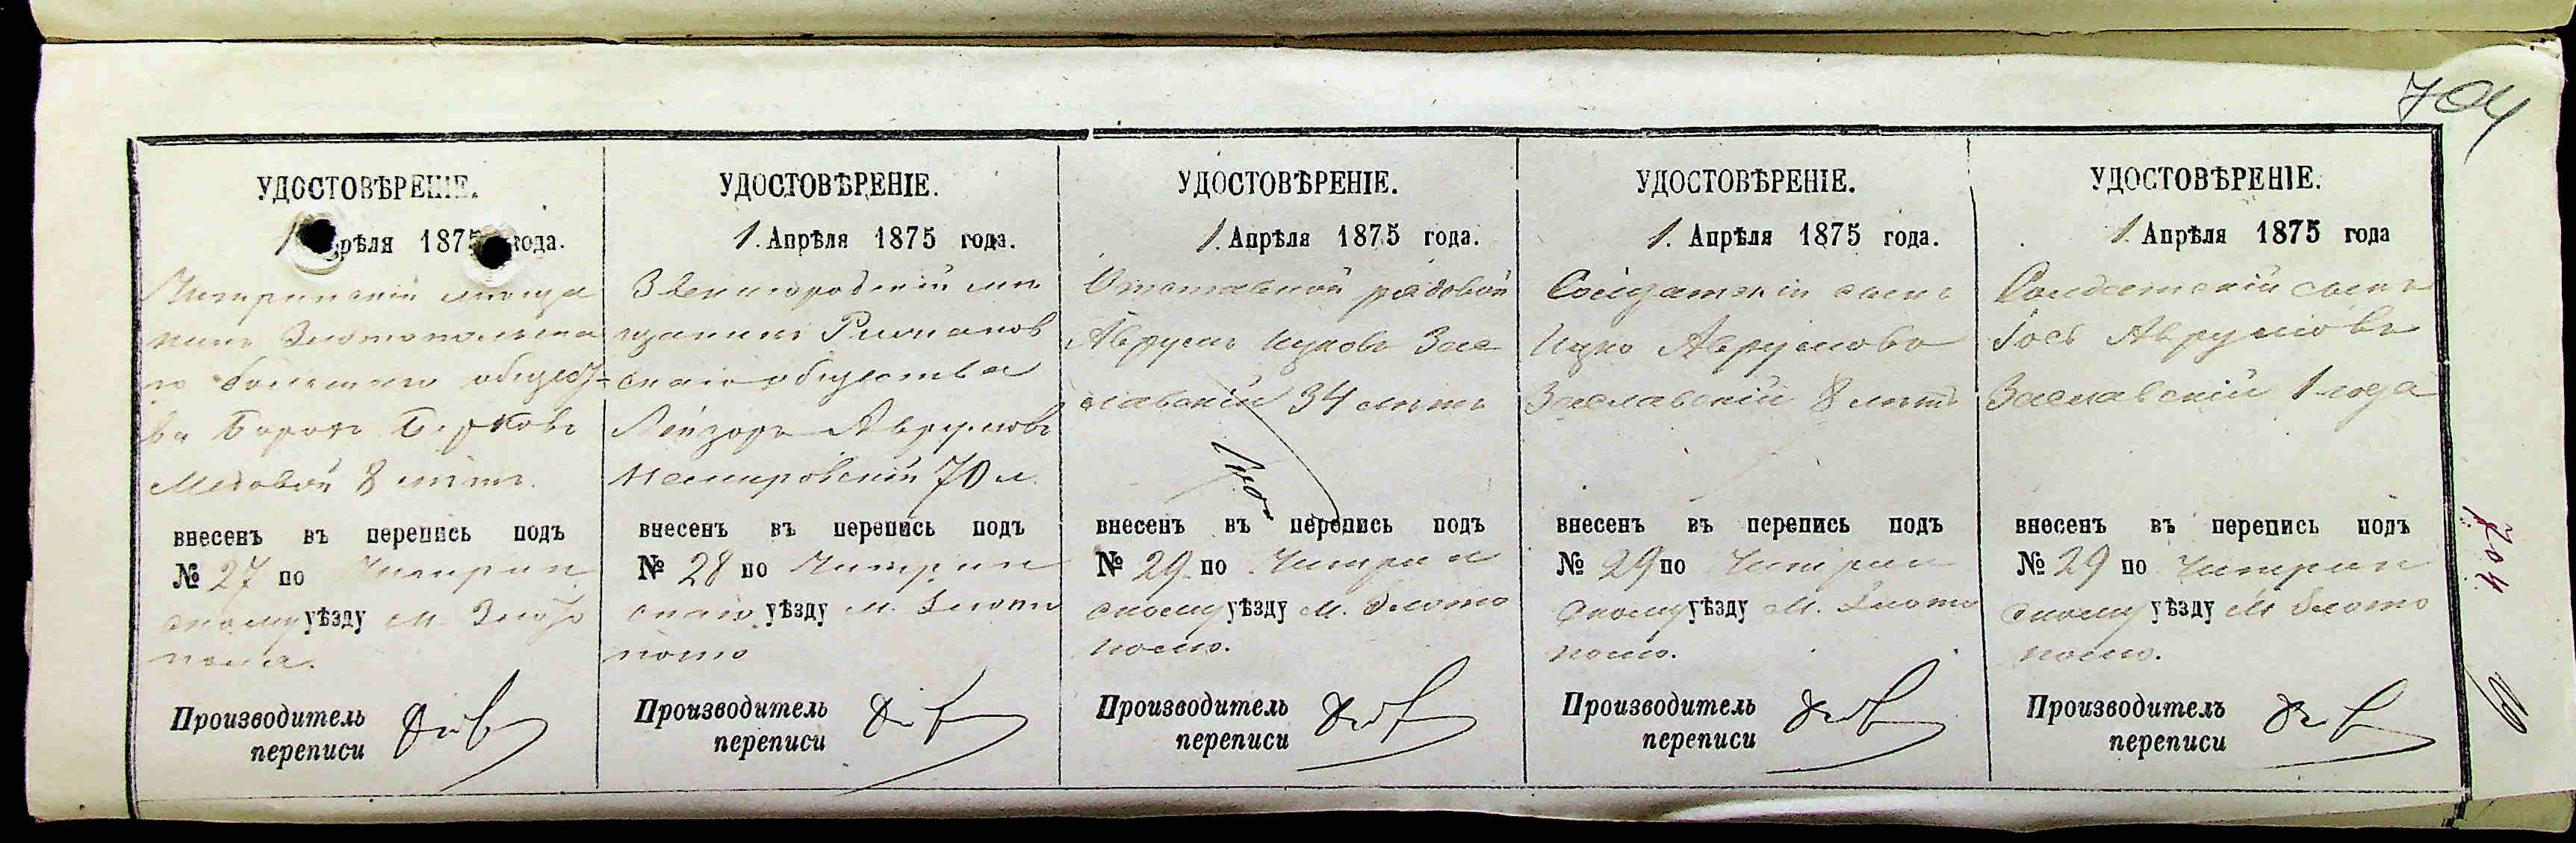 704
УДОСТОВѢРЕНІЕ.
1 Апрѣля 1875 года.
Чигиринскій мѣща
нинъ Златопольска
го общест
ва Борохъ Берковъ
Медовой 8 лѣтъ.
внесенъ въ перепись подъ
№ 27 по Чигирин
скому уѣзду м. Злато
поля.
Производитель
переписи
УДОСТОВѢРЕНІЕ.
1. Апрѣля 1875 года.
Звенигородскій мѣ
щанинъ Рижанов
скаго общества
Лейзоръ Аврумовъ
Немировскій 70 л.
внесенъ въ перепись подъ
№ 28 по Чигирин
скаго уѣзду м. Злато
полю
Производитель
переписи
УДОСТОВѢРЕНІЕ.
1. Апрѣля 1875 года.
Отставной рядовой
Аврумъ Ицковъ Зас
лавскій 34 лѣтъ
внесенъ въ перепись подъ
№ 29 по Чигирин
скому уѣзду м. Злато
полю.
Производитель
переписи
УДОСТОВѢРЕНІЕ.
1. Апрѣля 1875 года.
Солдатскій сынъ
Ицко Аврумовъ
Заславскій 8 лѣтъ
внесенъ въ перепись подъ
№ 29 по Чигирин
скому уѣзду м. Злато
полю.
Производитель
переписи
УДОСТОВѢРЕНІЕ.
1 Апрѣля 1875 года
Солдатскій сынъ
Іось Аврумовъ
Заславскій 1 года
внесенъ въ перепись подъ
№ 29 по Чигирин
скому уѣзду м. Злато
полю.
Производитель
переписи
704